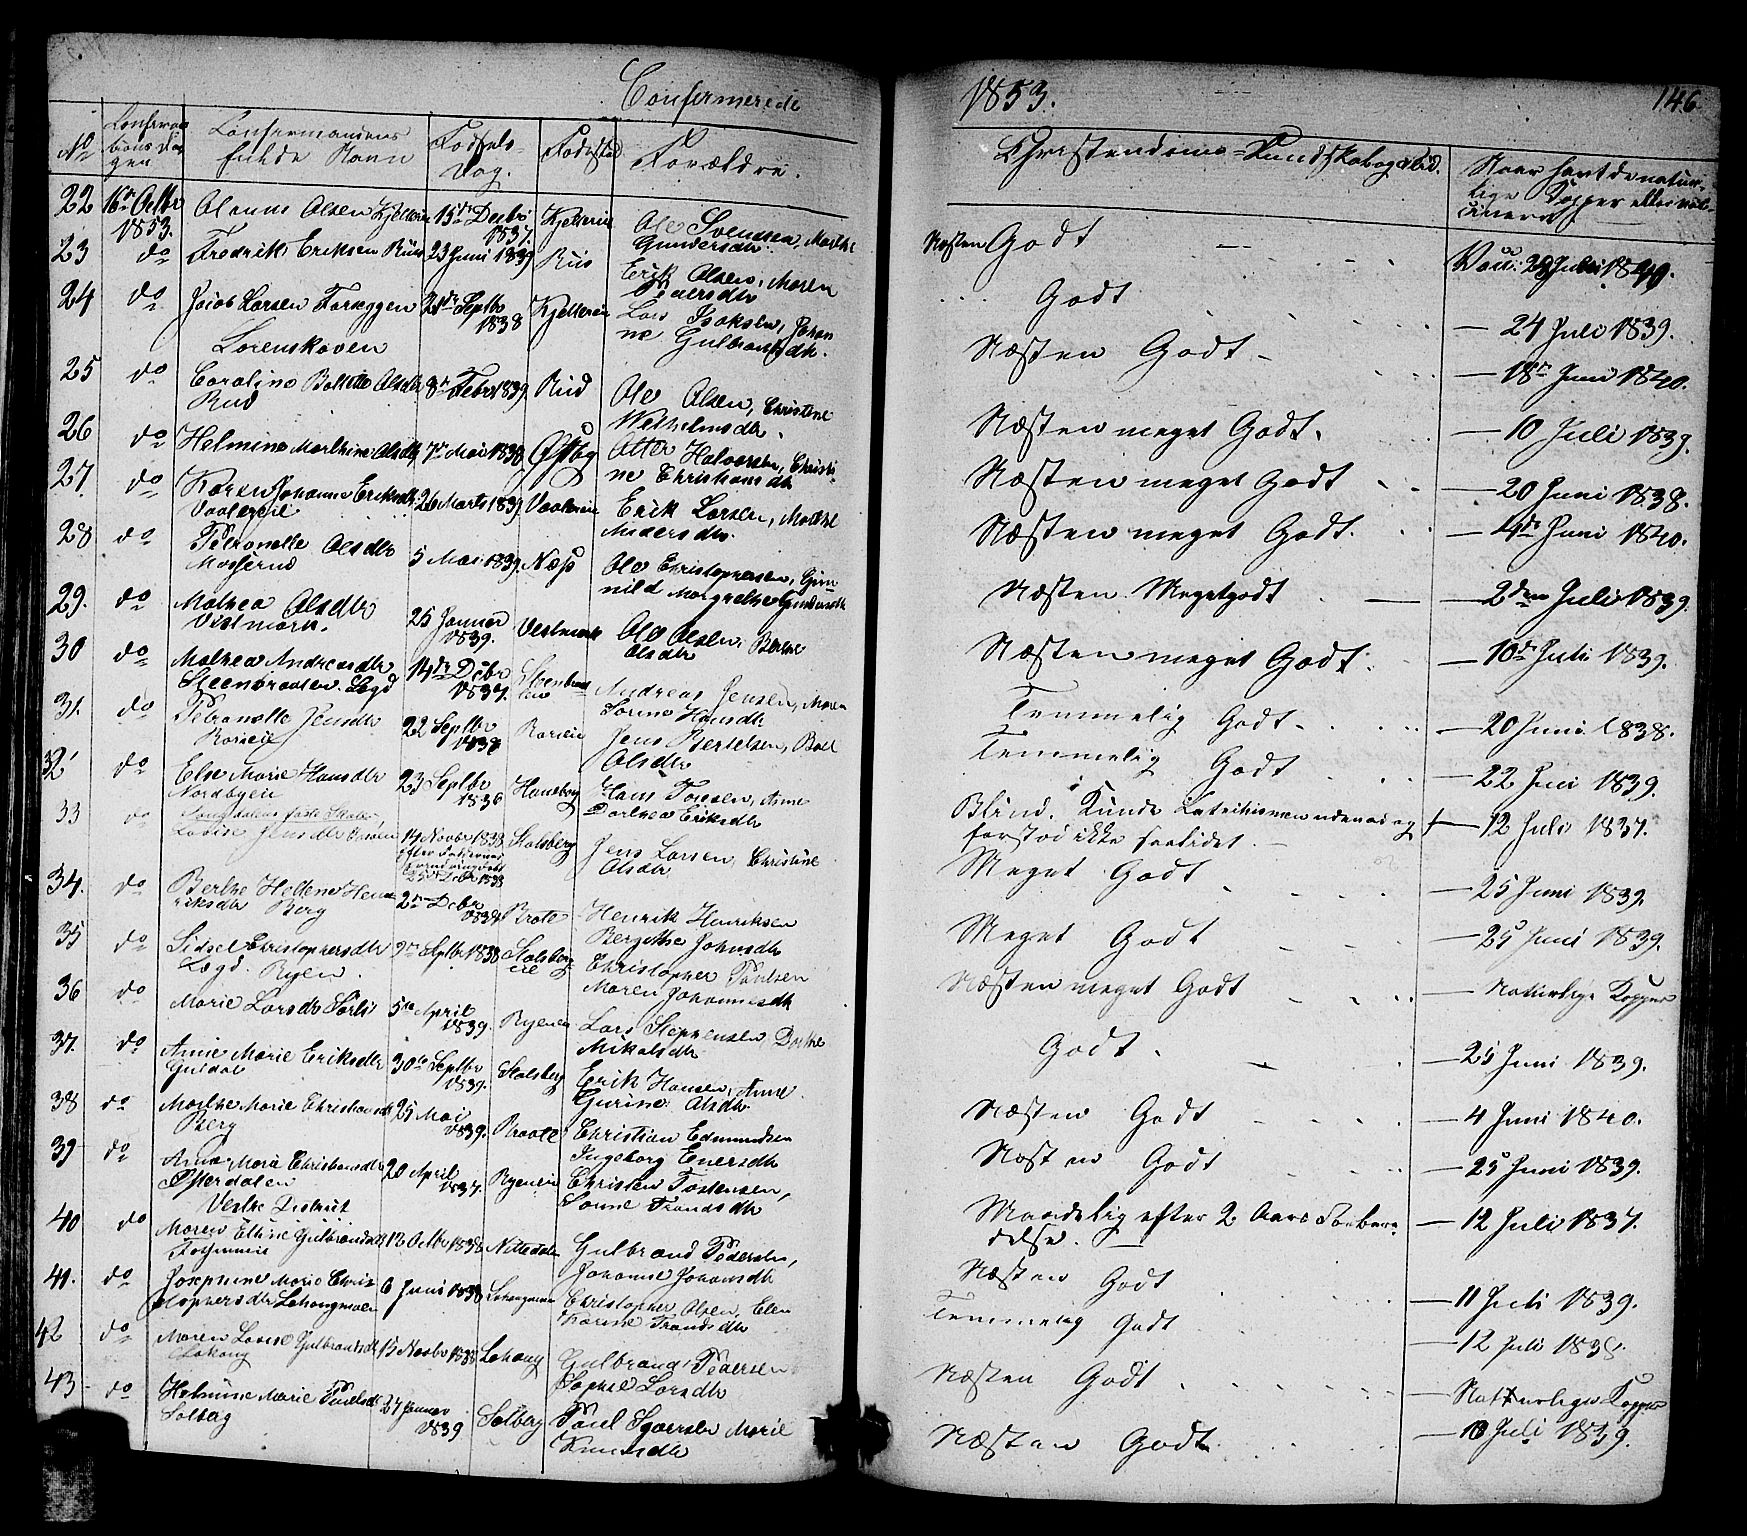 Confermerede
1853.
146.
No
Confirmationsdagen
Confirmandens fulde Navn
Fødsels-Dag.
Fødested
Forældre.
Christendoms-Kundskabogflid.
Naar havt de naturlige Kopper eller vaccinered
22 16de Octbr 1853. Olaves Olsen Kjelleren 15de Decbr 1837. Kjelleren Ole Svendsen, Marthe Gundersdtr. Næsten Godt Vacc: 28 Juli 1849.
23 do Fredrik Eriksen Riis 23 Juni 1839 Riis Erik Olsen, Maren Pedersdtr Godt 24 Juli 1839.
24 do Jacob Larsen Farseggen Lorenskoven Septbr 1838 Kjelleren Lars Isaksen, Johanne Gulbrandsdtr. Næsten Godt 18de Juni 1840.
25 do Caroline Bolette Olsdtr Rud 8de Febr 1839. Rud Ole Olsen, Christine Wilhelmsdtr. Næsten meget Godt. 10 Juli 1839.
26 do Helmine Marthine Olsdtr 7de Mai 1838 Østby Otter Halvorsen, Christine Christiansdtr Næsten meget Godt 20 Juni 1838.
27. do Karen Johanne Eriksdtr. Vaalereie 26 Marts 1839 Vaalereie Erik Larsen, Marthe Andersdtr. Næsten meget Godt. 4de Juni 1840.
28 do Petronelle Olsdtr Mosserud 5 Mai 1839. Næss Ole Christophersen, Gunnild Margrethe Gundersdtr Næsten Megetgodt 2den Juli 1839.
29. do Mathea Olsdtr Vestmark. 25 Januar 1839. Vestmark Ole Olsen, Berthe Olsdtr Næsten meget Godt. 10de Juli 1839.
30 do Mathea Andreasdtr Steenbraaten Legd 14de Decbr 1837. Andreas Jensen, Maren Sorine Hansdtr Temmelig Godt. 20 Juni 1838.
31. do Petronelle Jensdtr Roreie 22 Septbr 1838 Roreie Jens Bertelsen, Boel Olsdtr Temmelig Godt 22 Juli 1839.
32 do Else Marie Hansdtr Nordbyeie 23 Septbr 1836 Haneborg Hans Toresen, Anne Dorthea Eriksdtr Blind. Kunde Katekismen udenad og forstod ikke saalidet. 12 Juli 1837.
33 do Langvandens faste Skole, Lovise Jensdtr 14 Novbr 1838 Efter Faderens 25 Octbr 1838 Stalsberg Jens Larsen, Christine Olsdtr Meget Godt 25 Juni 1839.
34. do Berthe Hellene Henriksdtr Berg 2den Decbr 1838 Braate Henrik Henriksen Bergethe Johnsdtr Meget Godt 25 Juni 1839.
35 do Sidsel Christophersdtr Lægd. Ryen. 9de Septbr 1838 Stalsbergeie Christopher Paulsen Maren Johannesdtr Næsten meget Godt Naturlige Kopper
36 do Marie Larsdtr Sørli 5te April 1839. Ryeneie Lars Stephensen Dorthe Mikalsdtr Godt. 25 Juni 1839.
37. do Anne Marie Eriksdtr Guldal 30te Septbr 1839. Stalsberg Erik Hansen, Anne Gurine Olsdtr Næsten Godt 4 Juni 1840.
38 do Marthe Marie Christiansdt Berg 25 Mai 1839. Braate Christian Edmundsen Ingeborg Enersdtr Næsten Godt 25 Juni 1839.
39 do Anne Marie Christensdtr Østerdalen Vestre District 20 April 1837. Ryeneie Christen Tostensen, Sonne Trondsdtr Maadelig efter 2 Aars Forberedelse. 12 Juli 1837.
40 do Maren Elline Gulbrandsdtr 12 Octbr 1838 Nittedalen Gulbrand Pedersen, Johanne Johansdtr Næsten Godt 11 Juli 1839.
41. do Josephine Marie Christophersdtr Lohongmoen 6 Juni 1838 Christopher Olsen, Elen Karine Trondsdtr Temmelig Godt 12 Juli 1838.
42 do Maren Lovise Gulbrandsdt Lohong 15 Novbr 1838 Lohong Gulbrand Pedersen Sophie Larsdtr Næsten Godt Naturlige Kopper
43 do Helmine Marie Paulsdt Solberg 27 Januar 1839 Solberg Paul Sjversen Marie Knudsdtr Næsten Godt 10 Juli 1839.